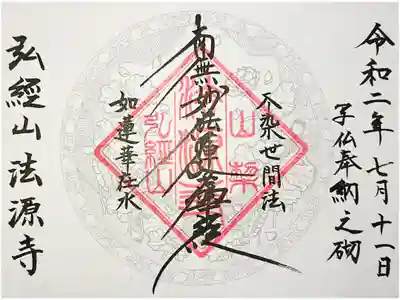 令和二年七月十一日
写仏奉納之砌
不染世間法
南無妙法蓮華経
如蓮華在水
弘經山法源寺